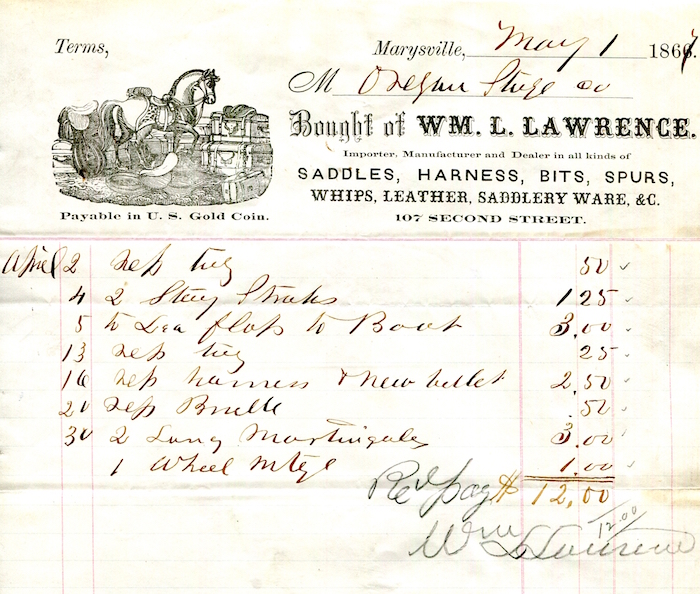 Terms, Marysville, May 1 1867
M Oregon Stage Co
Bought of WM. L. LAWRENCE.
Importer, Manufacturer and Dealer in all kinds of
SADDLES, HARNESS, BITS, SPURS,
WHIPS, LEATHER, SADDLERY WARE, &C.
Payable in U. S. Gold Coin. 107 SECOND STREET.
April 2 Rep tug 50
4 2 Stay Straps 1 25
5 to Lea flaps to Boot 3.00
13 Rep tug 25
16 Rep harness & new billet 2.50
20 Rep Bridle .50
30 2 Long Martingales 3.00
1 Wheel 1.00
Recd pay $ 12,00
12.00
Wm L Lawrence